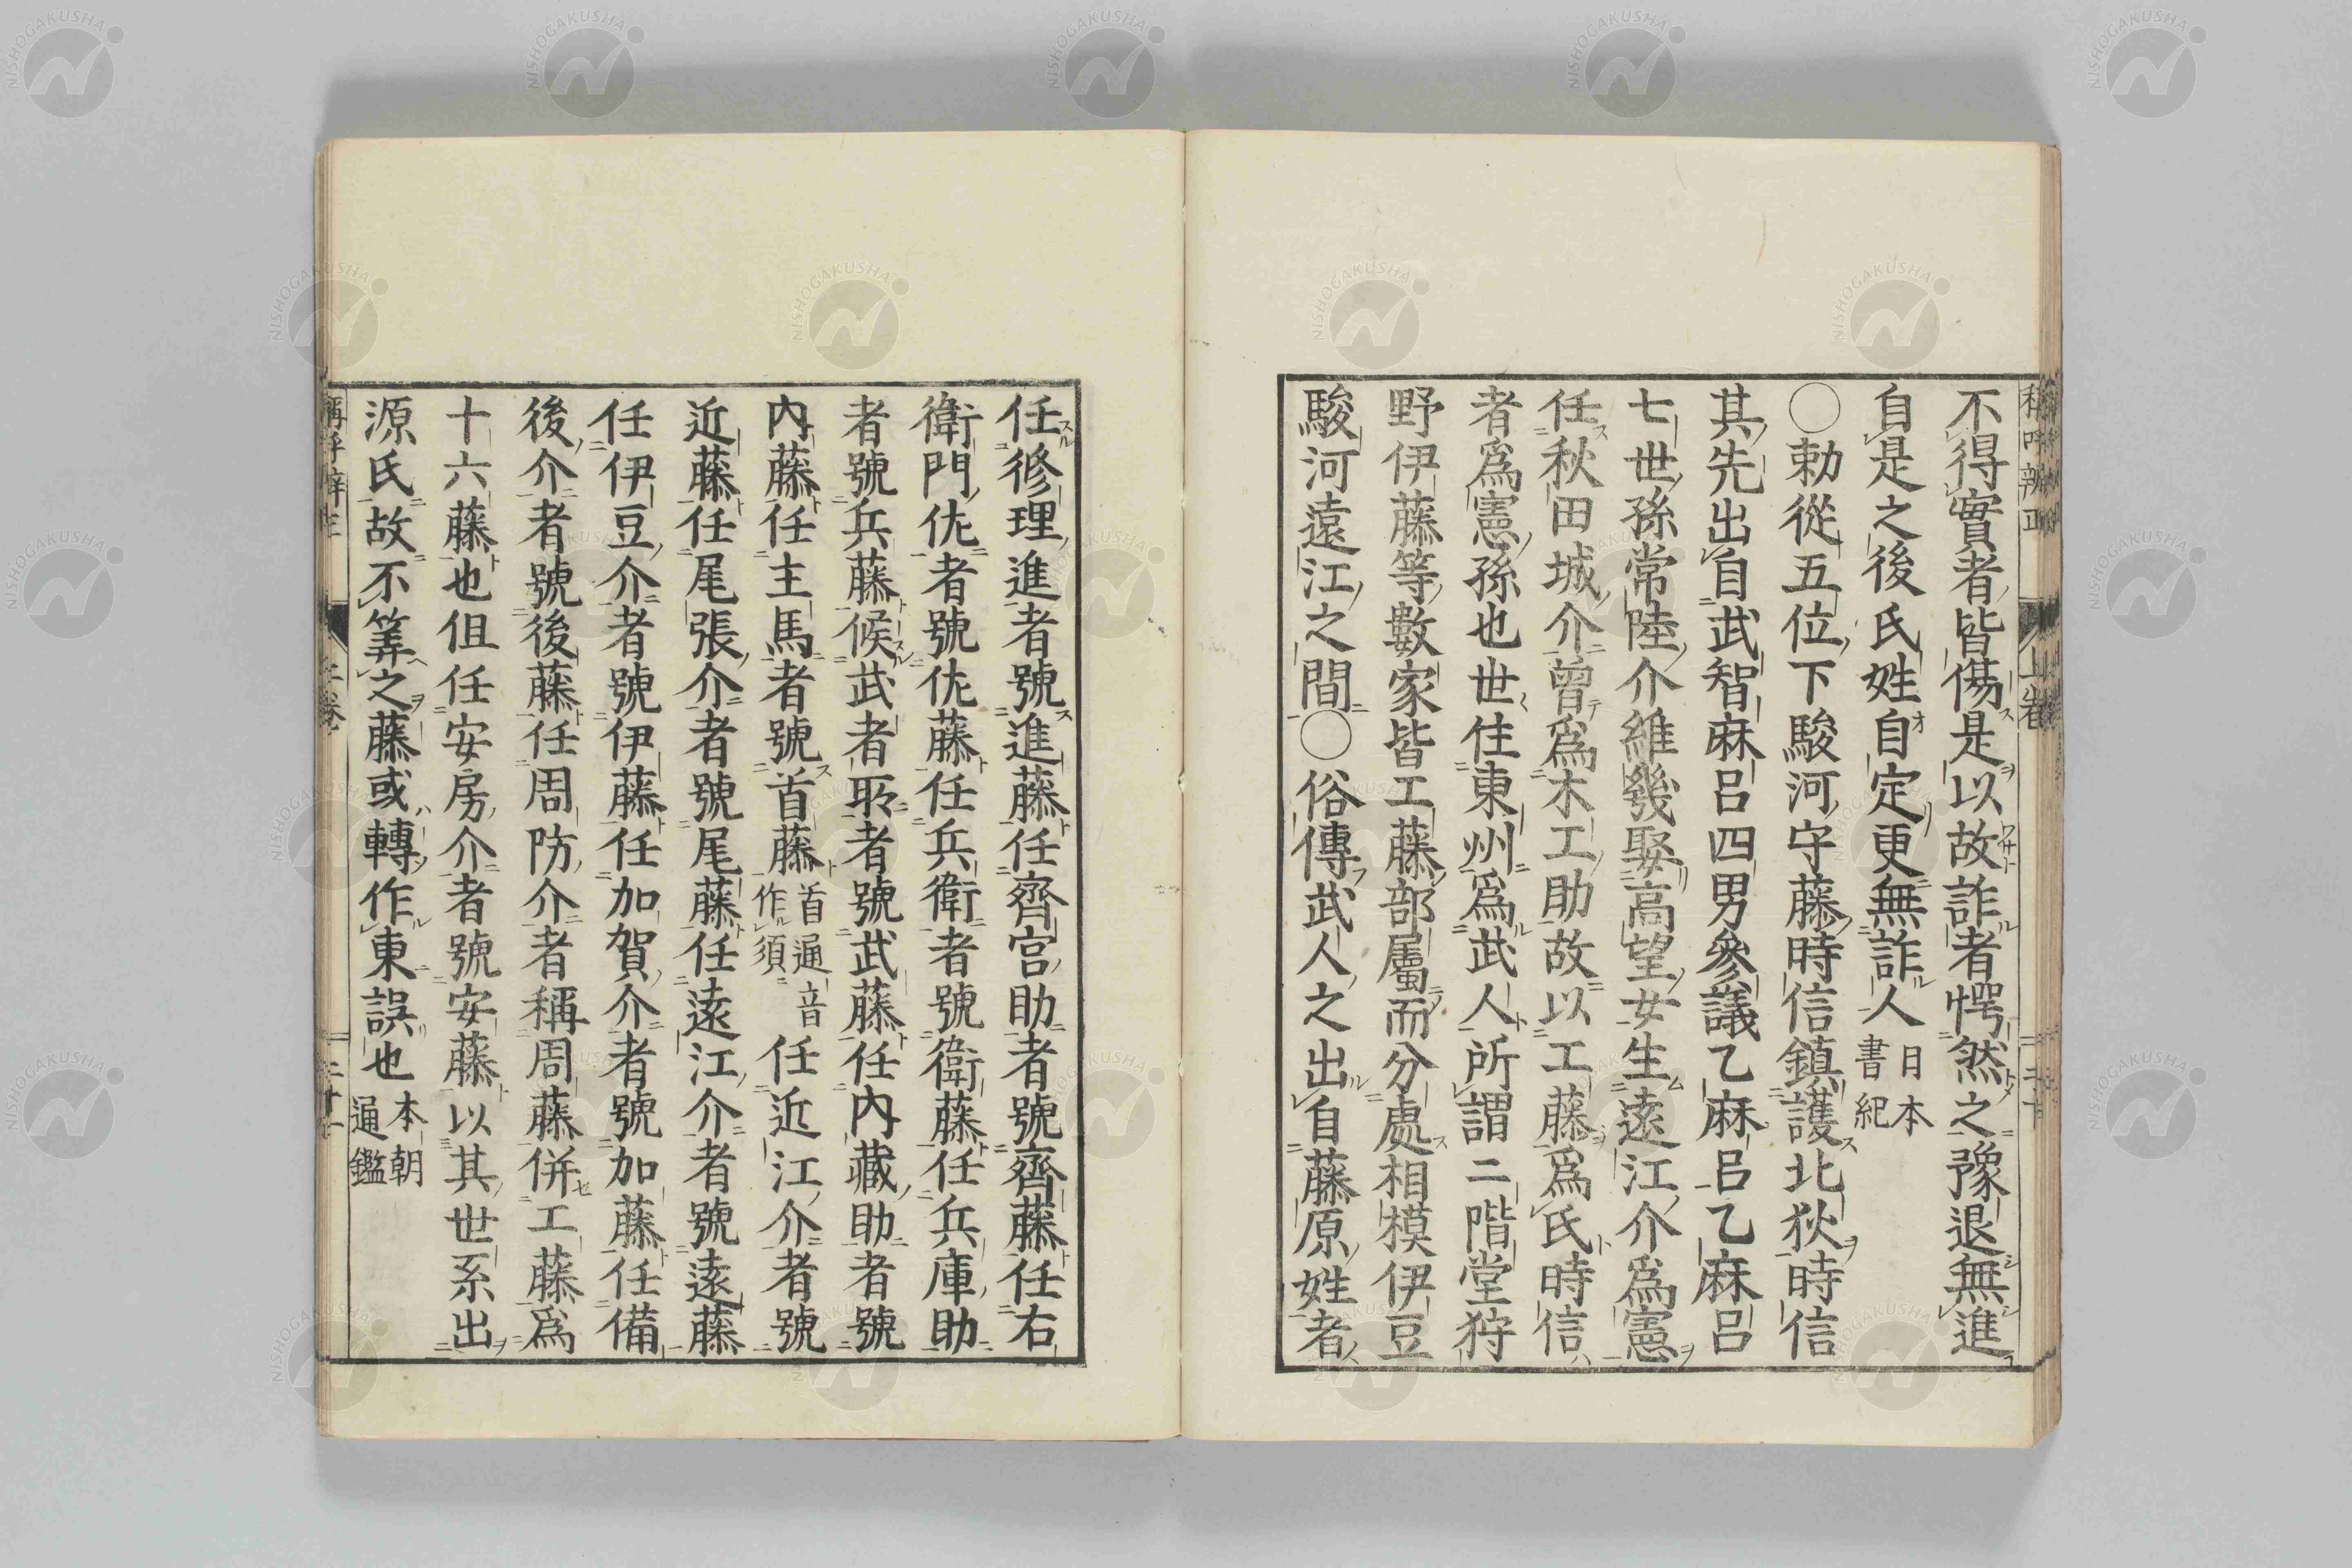 不得實者皆傷是以故詐者愕然之豫退無進
自是之後氏姓自定更無詐人日本書紀
○勅從五位下駿河守藤時信鎮護北狄時信
其先出自武智麻呂四男參議乙麻呂乙麻呂
七世孫常陸介維幾娶高望女生遠江介爲憲
任秋田城介曾爲木工助故以工藤爲氏時信
者爲憲孫也世住東州爲武人所謂二階堂狩
野伊藤等數家皆工藤部屬而分處相模伊豆
駿河遠江之間○俗傳武人之出自藤原姓者
任修理進者號進藤任齊宮助者號齊藤任右
衛門佐者號佐藤任兵衛者號衛藤任兵庫助
者號兵藤候武者所者號武藤任內藏助者號
內藤任主馬者號首藤首通音作須任近江介者號
近藤任尾張介者號尾藤任遠江介者號遠藤
任伊豆介者號伊藤任加賀介者號加藤任備
後介者號後藤任周防介者稱周藤併工藤爲
十六藤也但任安房介者號安藤以其世系出
源氏故不筭之藤或轉作東誤也本朝通鑑
NISHOGAKUSHA